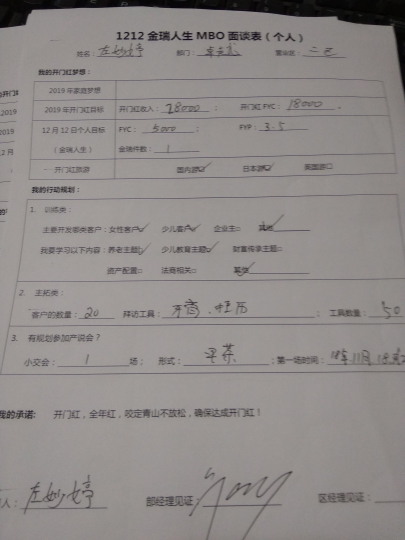 1212金瑞人生MBO面谈表（个人）
姓名：左妙婷 部门： 营业区：二区
我的开门红梦想：
2019年家庭梦想
2019年开门红目标 开门红收入：28000； 开门红FYC：18000.
12月12日个人目标 FYC：5000； FYP：3.5
（金瑞人生） 金瑞件数：1
开门红旅游 国内游☑ 日本游☑ 英国游□
我的行动规划：
1. 训练类：
主要开发哪类客户：女性客户☑ 少儿客户☑ 企业主□ 其他☑
我要学习以下内容：养老主题☑ 少儿教育主题☑ 财富传承主题□
资产配置□ 法商相关□ 其他☑
2. 主拓类：
客户的数量：20 拜访工具：牙膏、挂历； 工具数量：50
3. 有规划参加产说会？
小交会：1场； 形式：；第一场时间：
我的承诺： 开门红，全年红，咬定青山不放松，确保达成开门红！
人：左妙婷 部经理见证： 区经理见证：